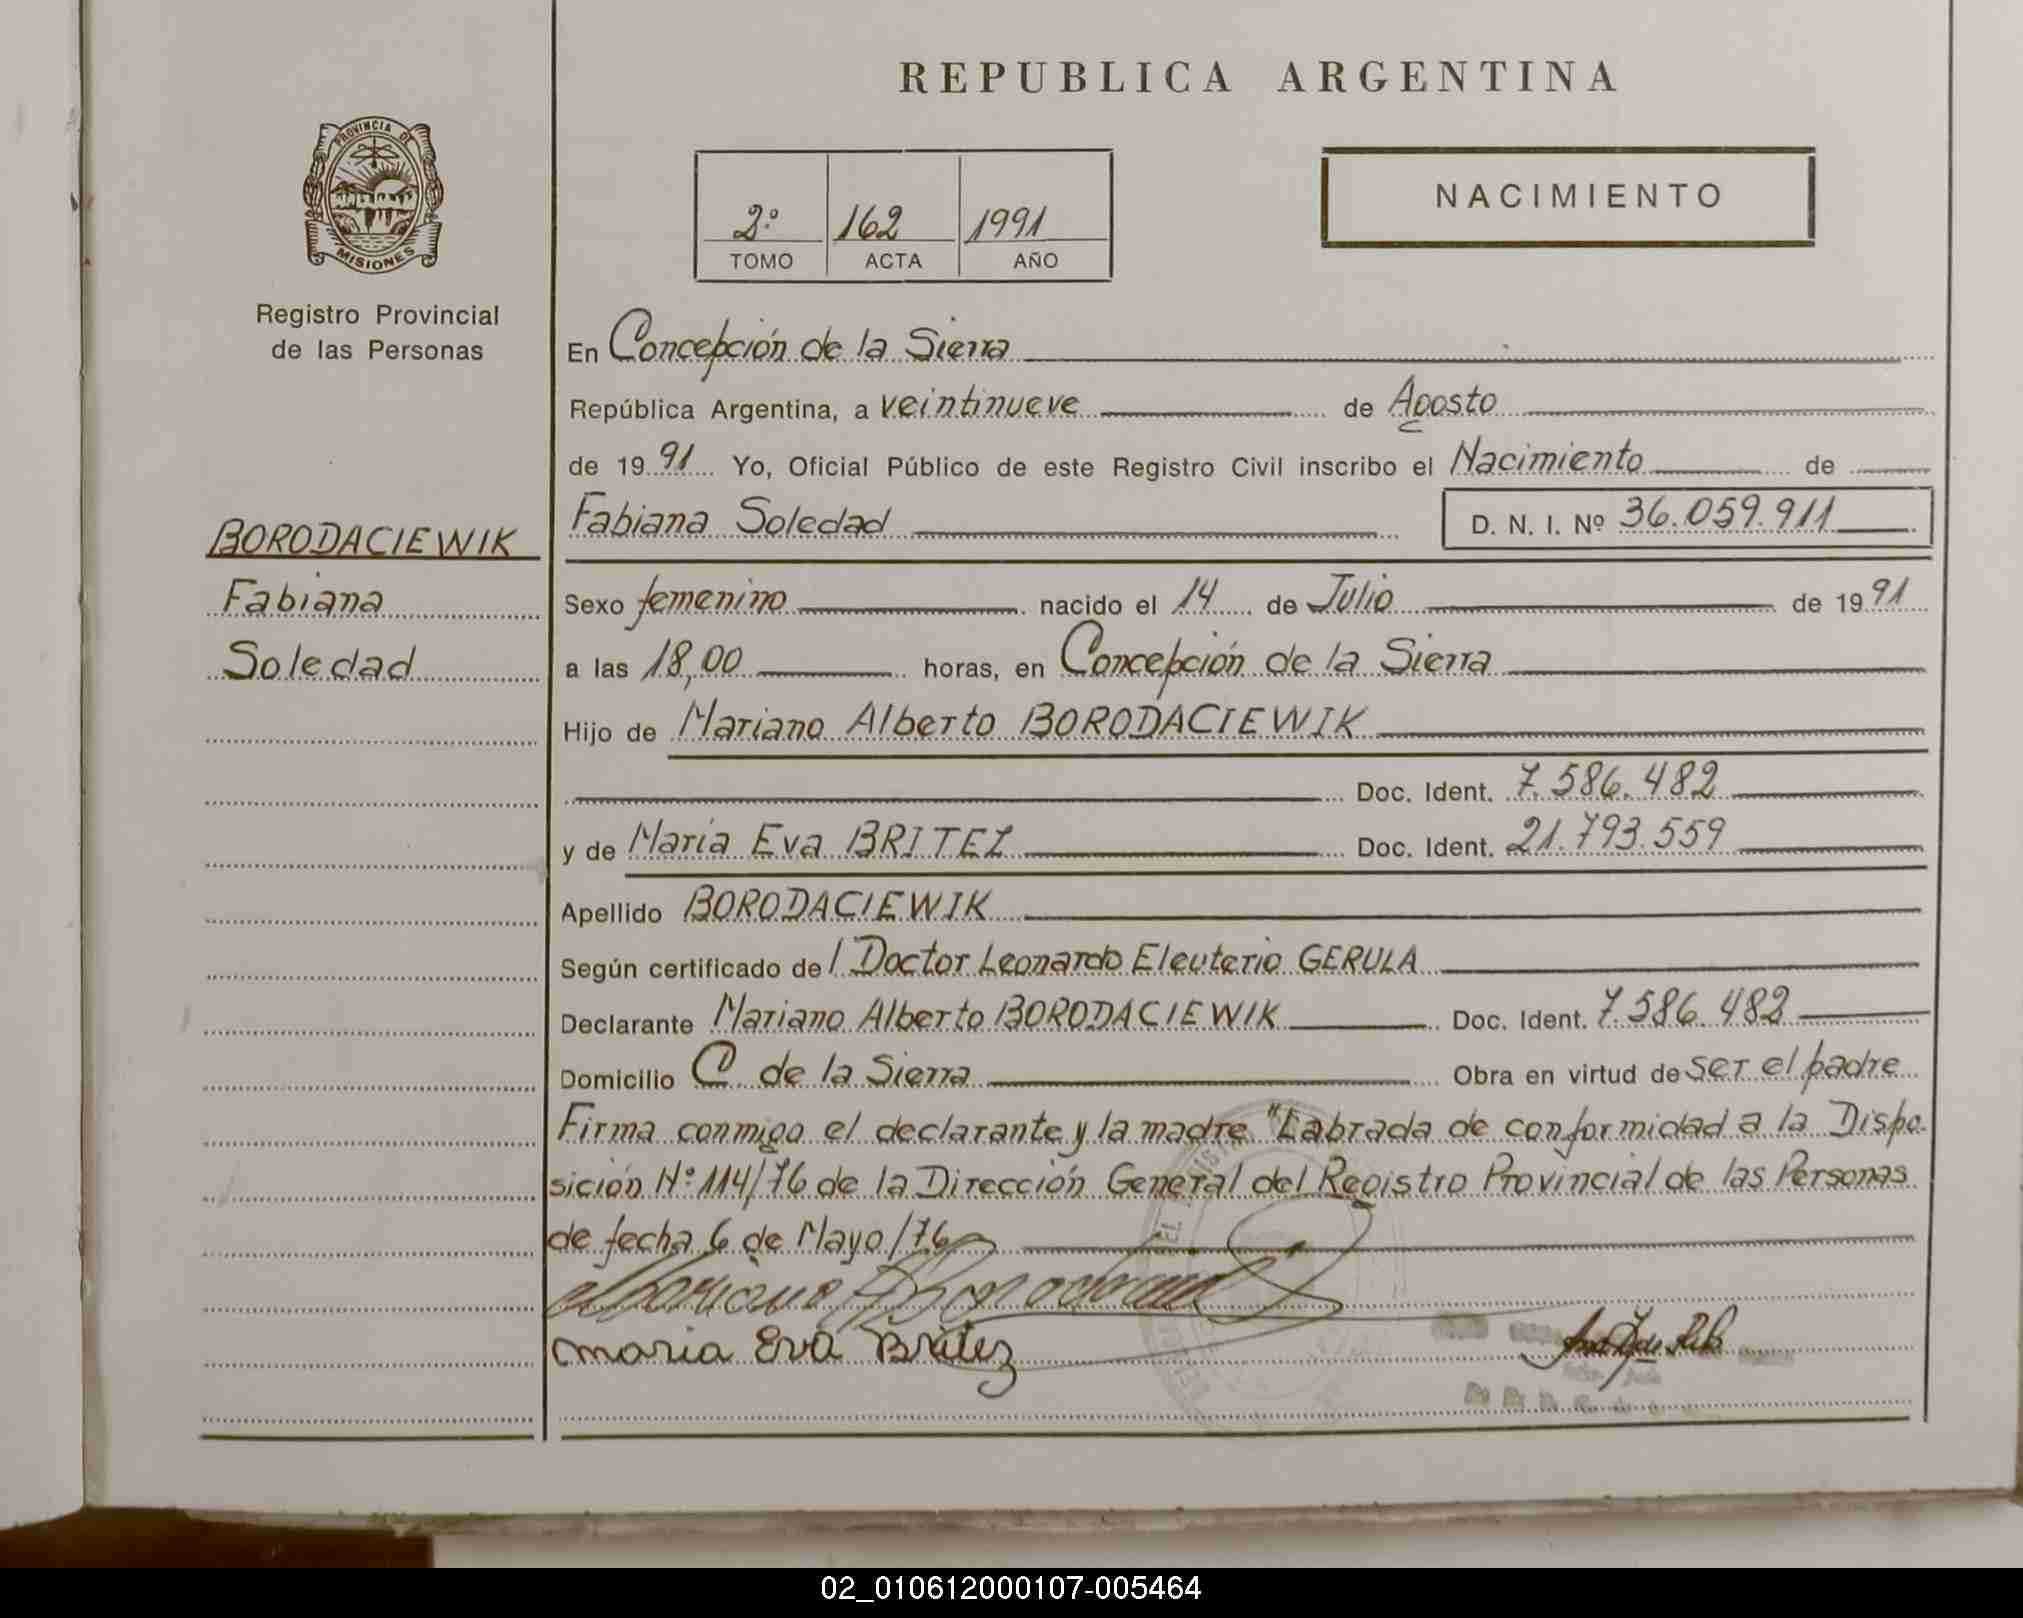 REPUBLICA ARGENTINA
PROVINCIA DE
MISIONES
Registro Provincial
de las Personas
2º 162 1991
TOMO ACTA AÑO
NACIMIENTO
En Concepción de la Sierra
República Argentina, a veintinueve de Agosto
de 1991 Yo, Oficial Público de este Registro Civil inscribo el Nacimiento de
Fabiana Soledad D. N. I. Nº 36.059.911
BORODACIEWIK
Fabiana
Soledad
Sexo femenino nacido el 14 de Julio de 1991
a las 18,00 horas, en Concepción de la Sierra
Hijo de Mariano Alberto BORODACIEWIK
Doc. Ident. 7.586.482
y de María Eva BRITEZ Doc. Ident. 21.793.559
Apellido BORODACIEWIK
Según certificado del Doctor Leonardo Eleuterio GERULA
Declarante Mariano Alberto BORODACIEWIK Doc. Ident. 7.586.482
Domicilio C. de la Sierra Obra en virtud de ser el padre
Firma conmigo el declarante y la madre "Labrada de conformidad a la Dispo-
sición Nº 114/76 de la Dirección General del Registro Provincial de las Personas
de fecha 6 de Mayo/76
maria Eva Britez
02_010612000107-005464